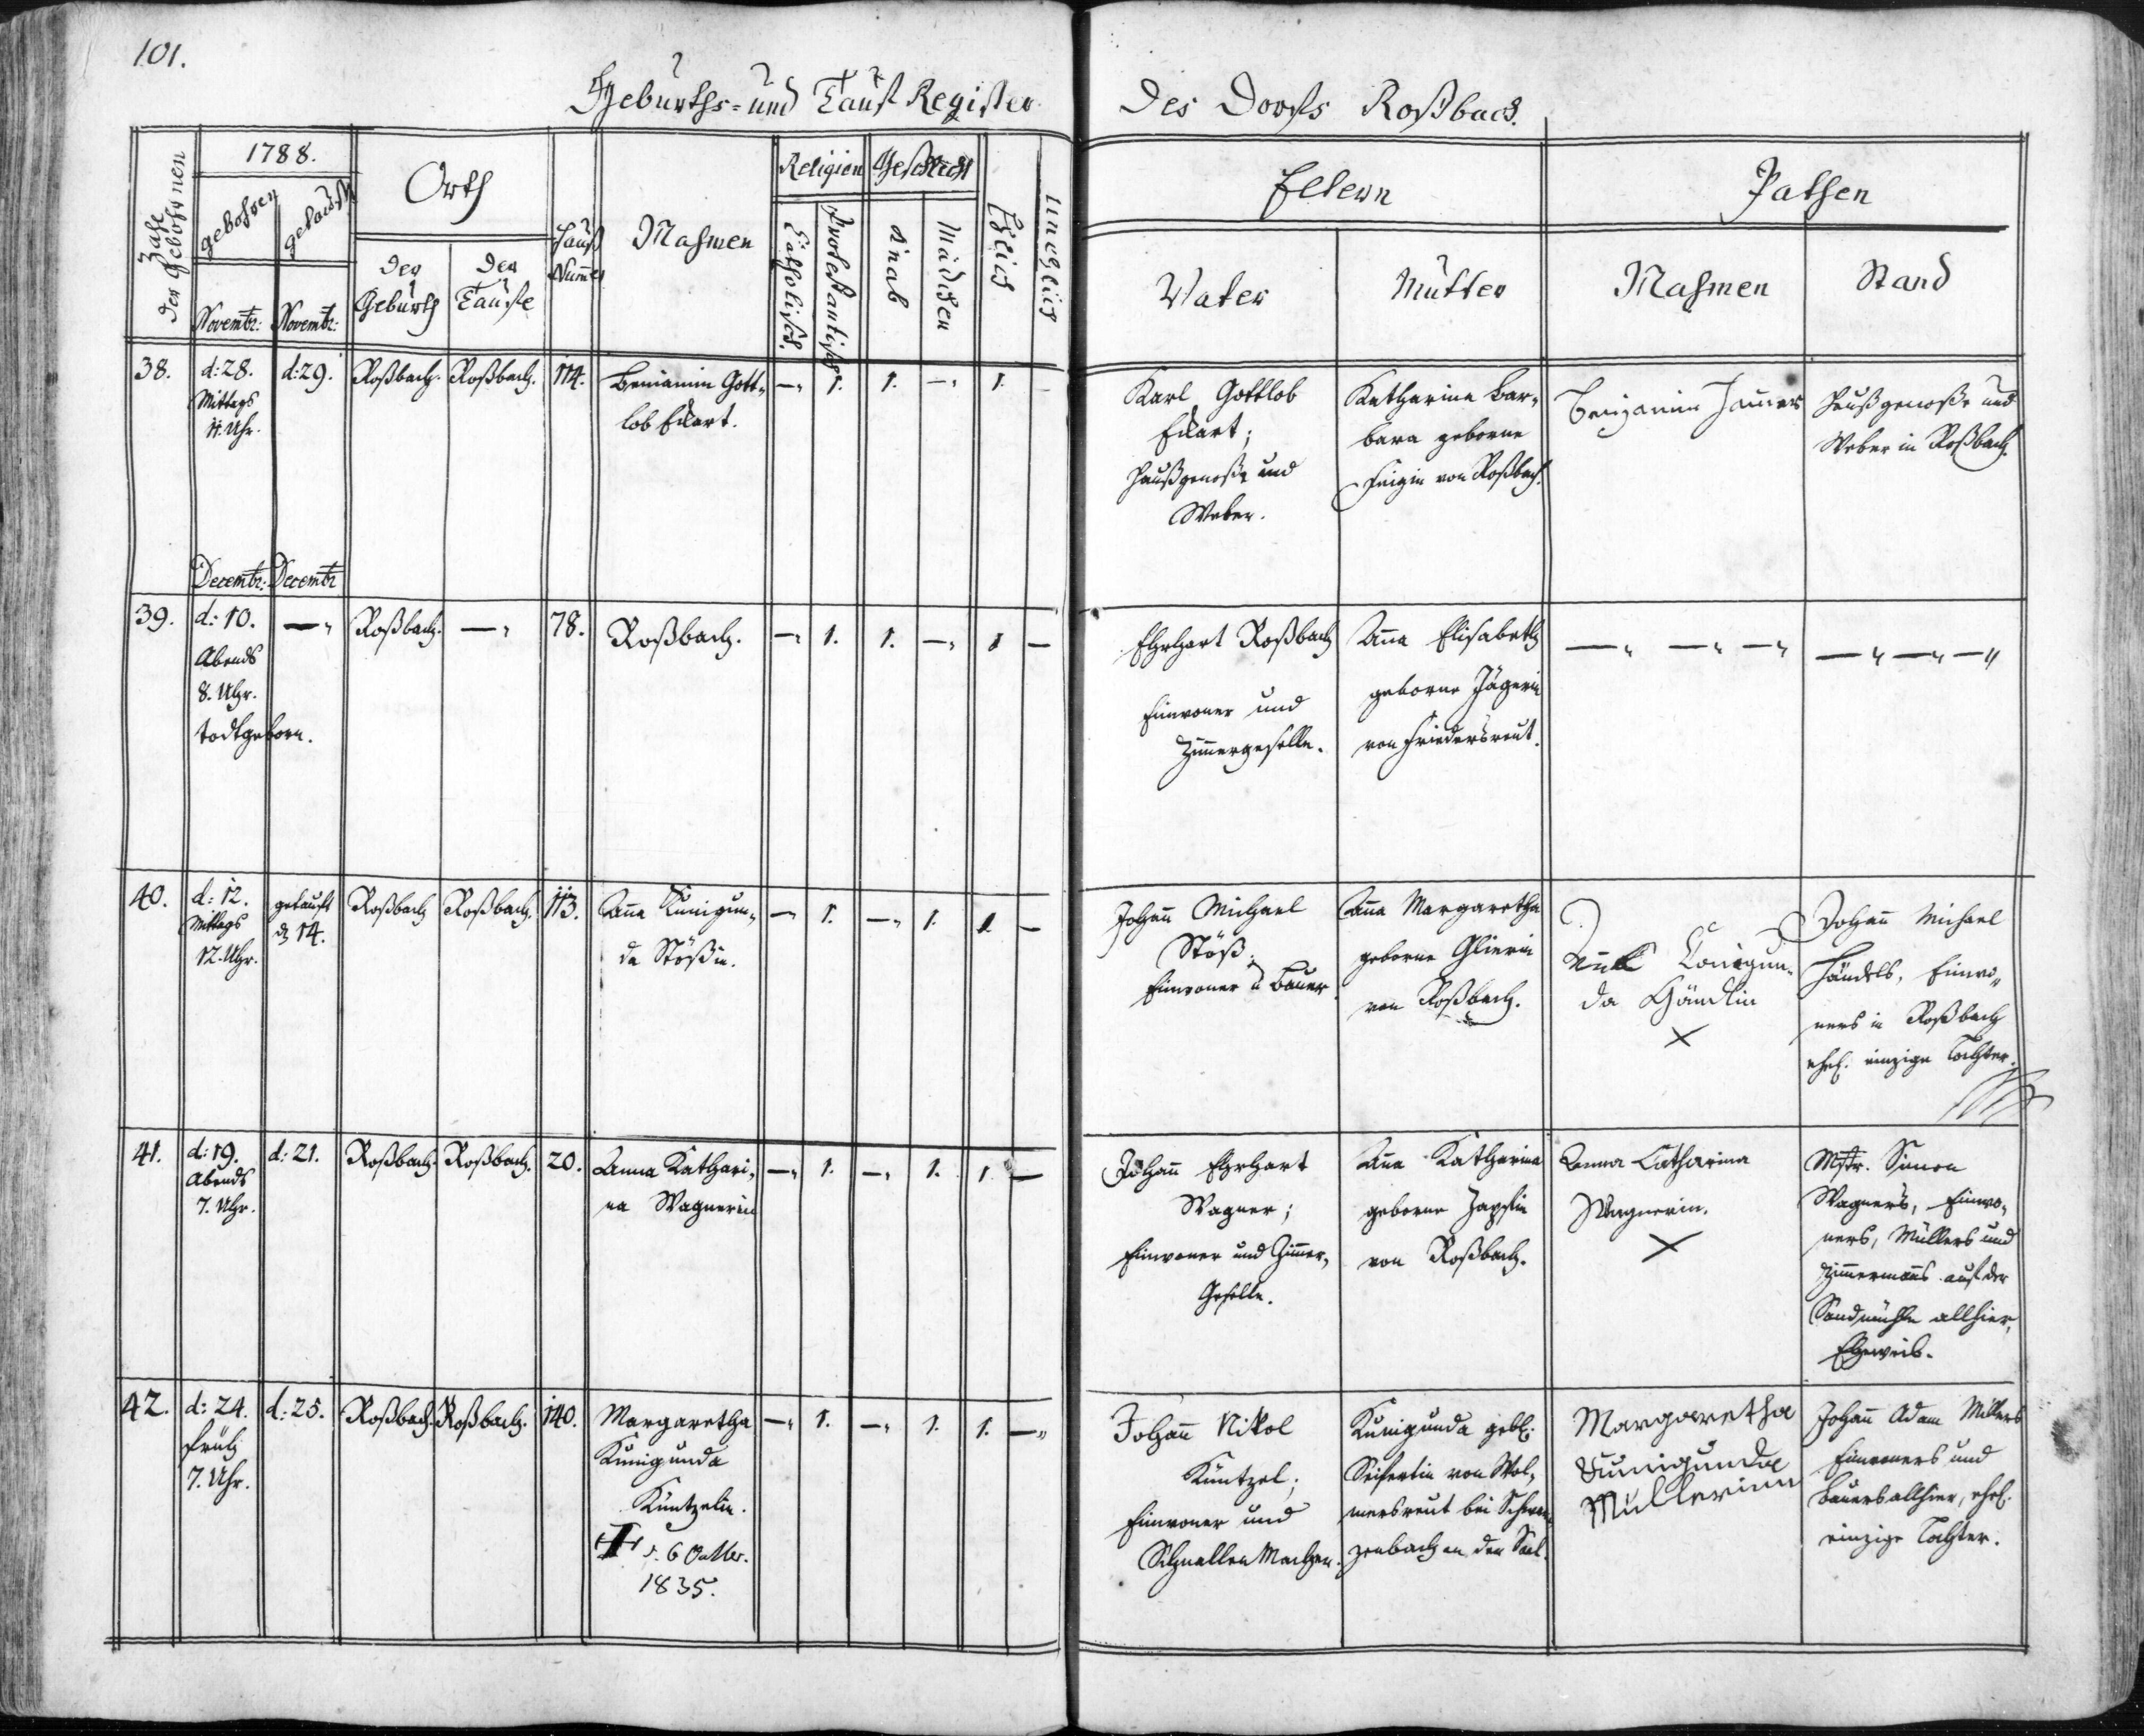 101.
Geburths- und Tauf Register des Dorfs Roßbach.
Zahl der Gebohrnen
1788.
gebohren
getauft
Novembr:
Novembr:
Orth
der Geburth
der Taufe
Hauß Num̃er
Nahmen
Religion
Catholisch.
Protestantisch.
Geschlecht
Knab
Mädchen
Ehlich
Unehlich
Eltern
Vater
Mutter
Pathen
Nahmen
Stand
38.
d: 28.
Mittags
11. Uhr.
d: 29.
Roßbach.
Roßbach.
114.
Beniamin Gott-
lob Eckart.
—„ 1. 1. —„ 1.
Karl Gottlob
Eckart;
Haußgenoße und
Weber.
Katharina Bar-
bara geborne
von Roßbach.
Benjamin
Haußgenoße und
Weber in Roßbach.
Decembr: Decembr
39.
d: 10.
Abends
8. Uhr.
todtgeborn.
—„
Roßbach.
—„
78.
Roßbach.
—„ 1. 1. —„ 1 —
Ehrhart Roßbach
Einwoner und
Zim̃ergeselle.
Anna Elisabeth
geborne Jägerin
von Friedersreut.
—„ —„ —„
—„ —„ —„
40.
d: 12.
Mittags
12. Uhr.
getauft
d 14.
Roßbach
Roßbach.
113.
Anna Kunigun-
da Stößin.
— 1. —„ 1. 1 —
Johañ Michael
Stöß;
Einwoner u Bauer.
Anna Margaretha
geborne Glierin
von Roßbach.
Conigun-
da Händlin
X
Johañ Michael
Händels, Einwo-
ners in Roßbach
ehel. einzige Tochter.
41.
d: 19.
Abends
7. Uhr.
d: 21.
Roßbach.
Roßbach.
20.
Anna Kathari-
na Wagnerin
—„ 1. —„ 1. 1 —
Johañ Ehrhart
Wagner;
Einwoner und Zim̃er-
Geselle.
Anna Katharina
geborne
von Roßbach.
Anna Catharina
Wagnerin.
X
Mstr. Simon
Wagners, Einwo-
ners, Müllers und
Zim̃ermañs auf der
Sandmühle allhier,
Eheweib.
42.
d: 24.
früh
7. Uhr.
d: 25.
Roßbach.
Roßbach.
140.
Margaretha
Kunigunda
Küntzelin.
6 Octbr.
1835.
—„ 1. —„ 1. 1. —„
Johañ Nikol
Küntzel;
Einwoner und
Schnallen Macher.
Kunigunda gebl.
Seifertin von Wol-
mersreut bei Schwar-
zenbach an der Saal.
Margaretha
Kunigunda
Müllerinn
Johañ Adam Müllers
Einwoners und
Bauers allhier, ehel.
einzige Tochter.